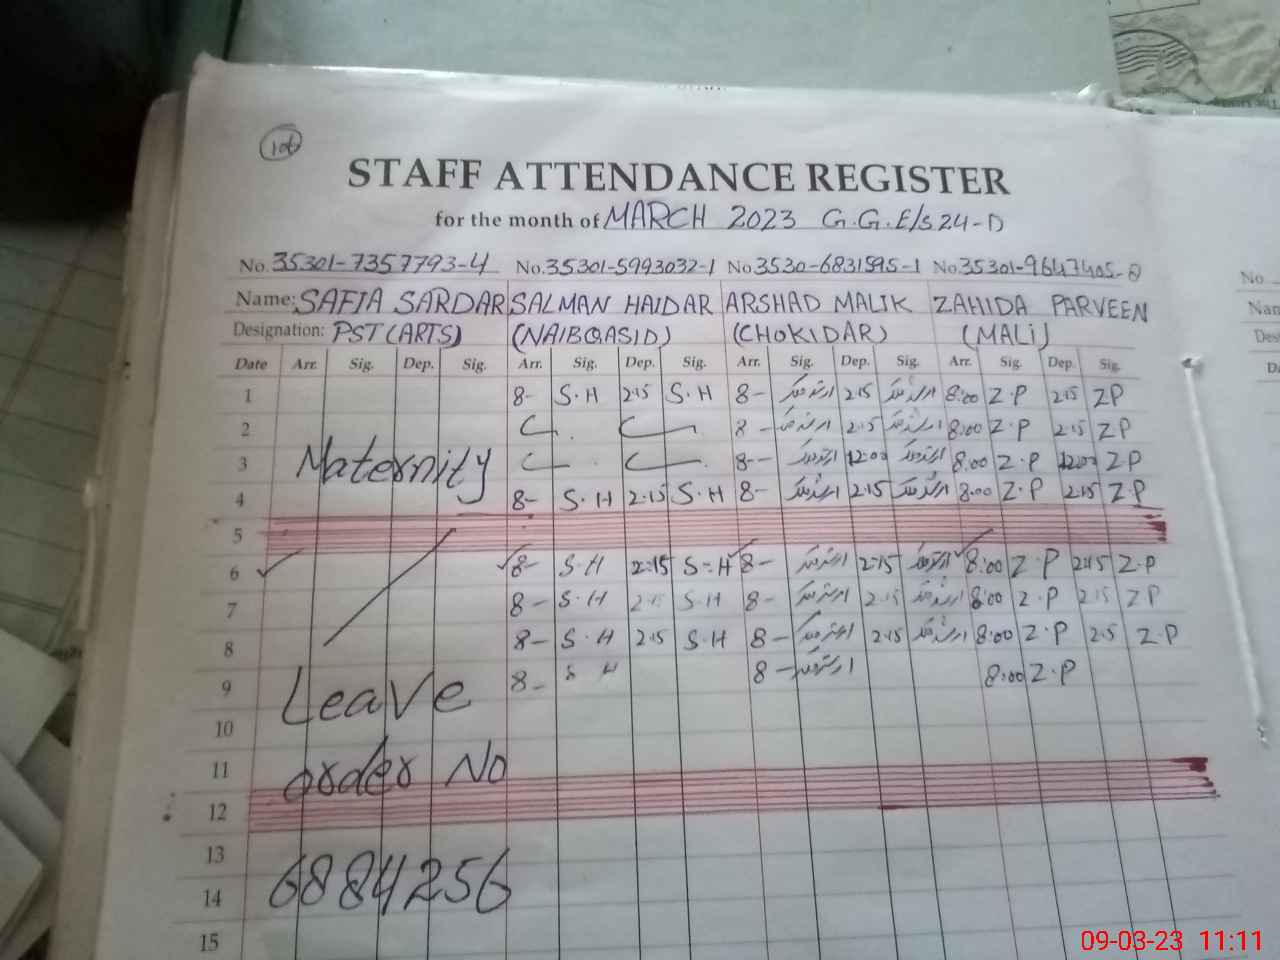 106
STAFF ATTENDANCE REGISTER
for the month of MARCH 2023 G.G.E/S 24-D
No. 35301-7357793-4 No. 35301-5993032-1 No 3530-6831595-1 No. 35301-9647405-8
Name: SAFIA SARDAR SALMAN HAIDAR ARSHAD MALIK ZAHIDA PARVEEN
Designation: PST (ARTS) (NAIBQASID) (CHOKIDAR) (MALI)
Date Arr. Sig. Dep. Sig. Arr. Sig. Dep. Sig. Arr. Sig. Dep. Sig. Arr. Sig. Dep. Sig.
1 8- S.H 2:15 S.H 8- 2:15 8:00 Z.P 2:15 ZP
2 8- 2:15 8:00 Z.P 2:15 ZP
3 Maternity 8- 12:00 8:00 Z.P 12:00 ZP
4 8- S.H 2:15 S.H 8- 2:15 8:00 Z.P 2:15 Z.P
5
6 8- S.H 2:15 S-H 8- 2:15 8:00 Z.P 2:15 Z.P
7 8- S.H 2:15 S.H 8- 2:15 8:00 Z.P 2:15 ZP
8 8- S.H 2:15 S.H 8- 2:15 8:00 Z.P 2:5 Z.P
9 Leave 8- S H 8- 8:00 Z.P
10
11 order No
12
13
14 6884256
15
No.
Nam
Des
Da
09-03-23 11:11